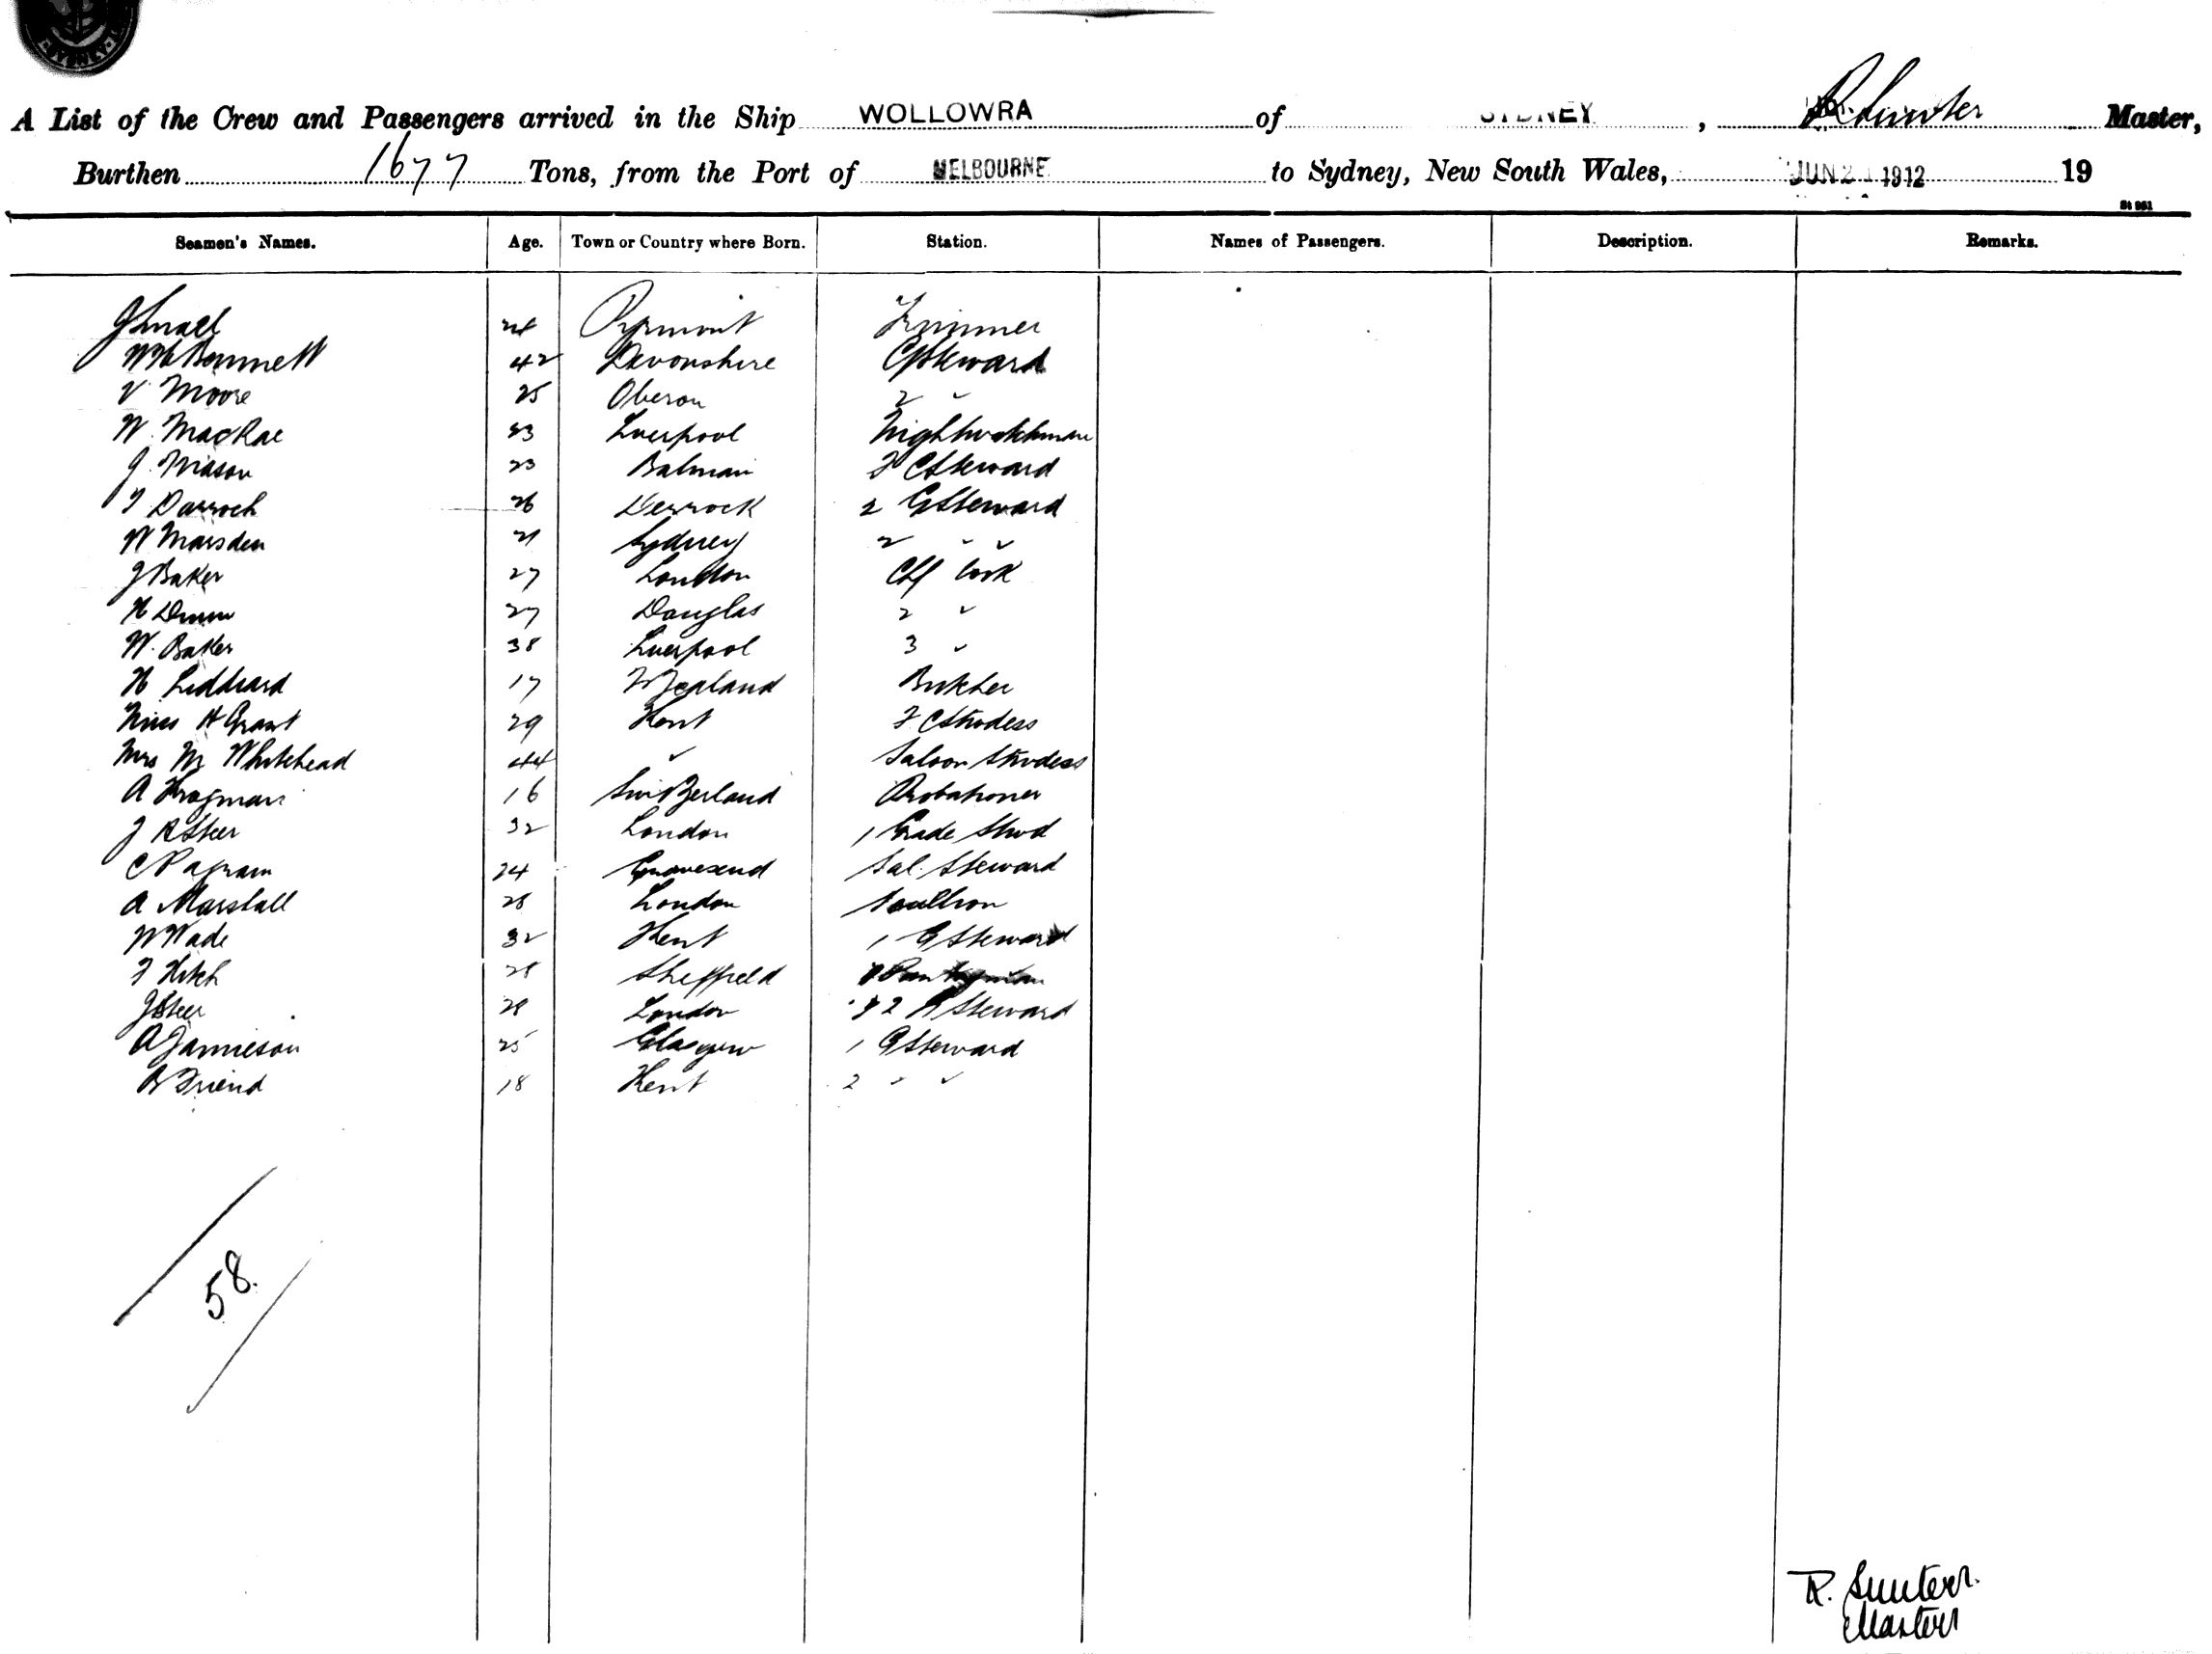 A List of the Crew and Passengers arrived in the Ship WOLLOWRA of SYDNEY, R Sunter Master,
Burthen 1677 Tons, from the Port of MELBOURNE to Sydney, New South Wales, JUN 21 1912 19
St 961
Seamen's Names. Age. Town or Country where Born. Station. Names of Passengers. Description. Remarks.
J 24 Pyrmont Trimmer
W H Bonnett 42 Devonshire Cf Steward
V Moore 25 Oberon 2 "
W. MacRae 23 Liverpool Nightwatchman
J. Mason 23 Balmain F C Steward
T Darroch 26 Derrock 2 G Steward
W Marsden 21 Sydney 2 " "
J Baker 27 London Chf Cook
H Dunn 27 Douglas 2 "
W. Baker 38 Liverpool 3 "
H Liddiard 17 N Zealand Butcher
Miss H Grant 29 Kent F C Stwdess
Mrs M Whitehead 44 " Saloon Stwdess
A Krogman 16 Switzerland Probationer
J R Steer 32 London 1 Grade Stwd
C Pagram 24 Gravesend Sal. Steward
A Marshall 28 London Scullion
W Wade 32 Kent 1 G Steward
F Hitch 28 Sheffield Pantryman
J Steer 28 London 2 G Steward
A Jamieson 25 Glasgow 1 G Steward
A Friend 18 Kent 2 " "
58.
R. Sunter.
Master